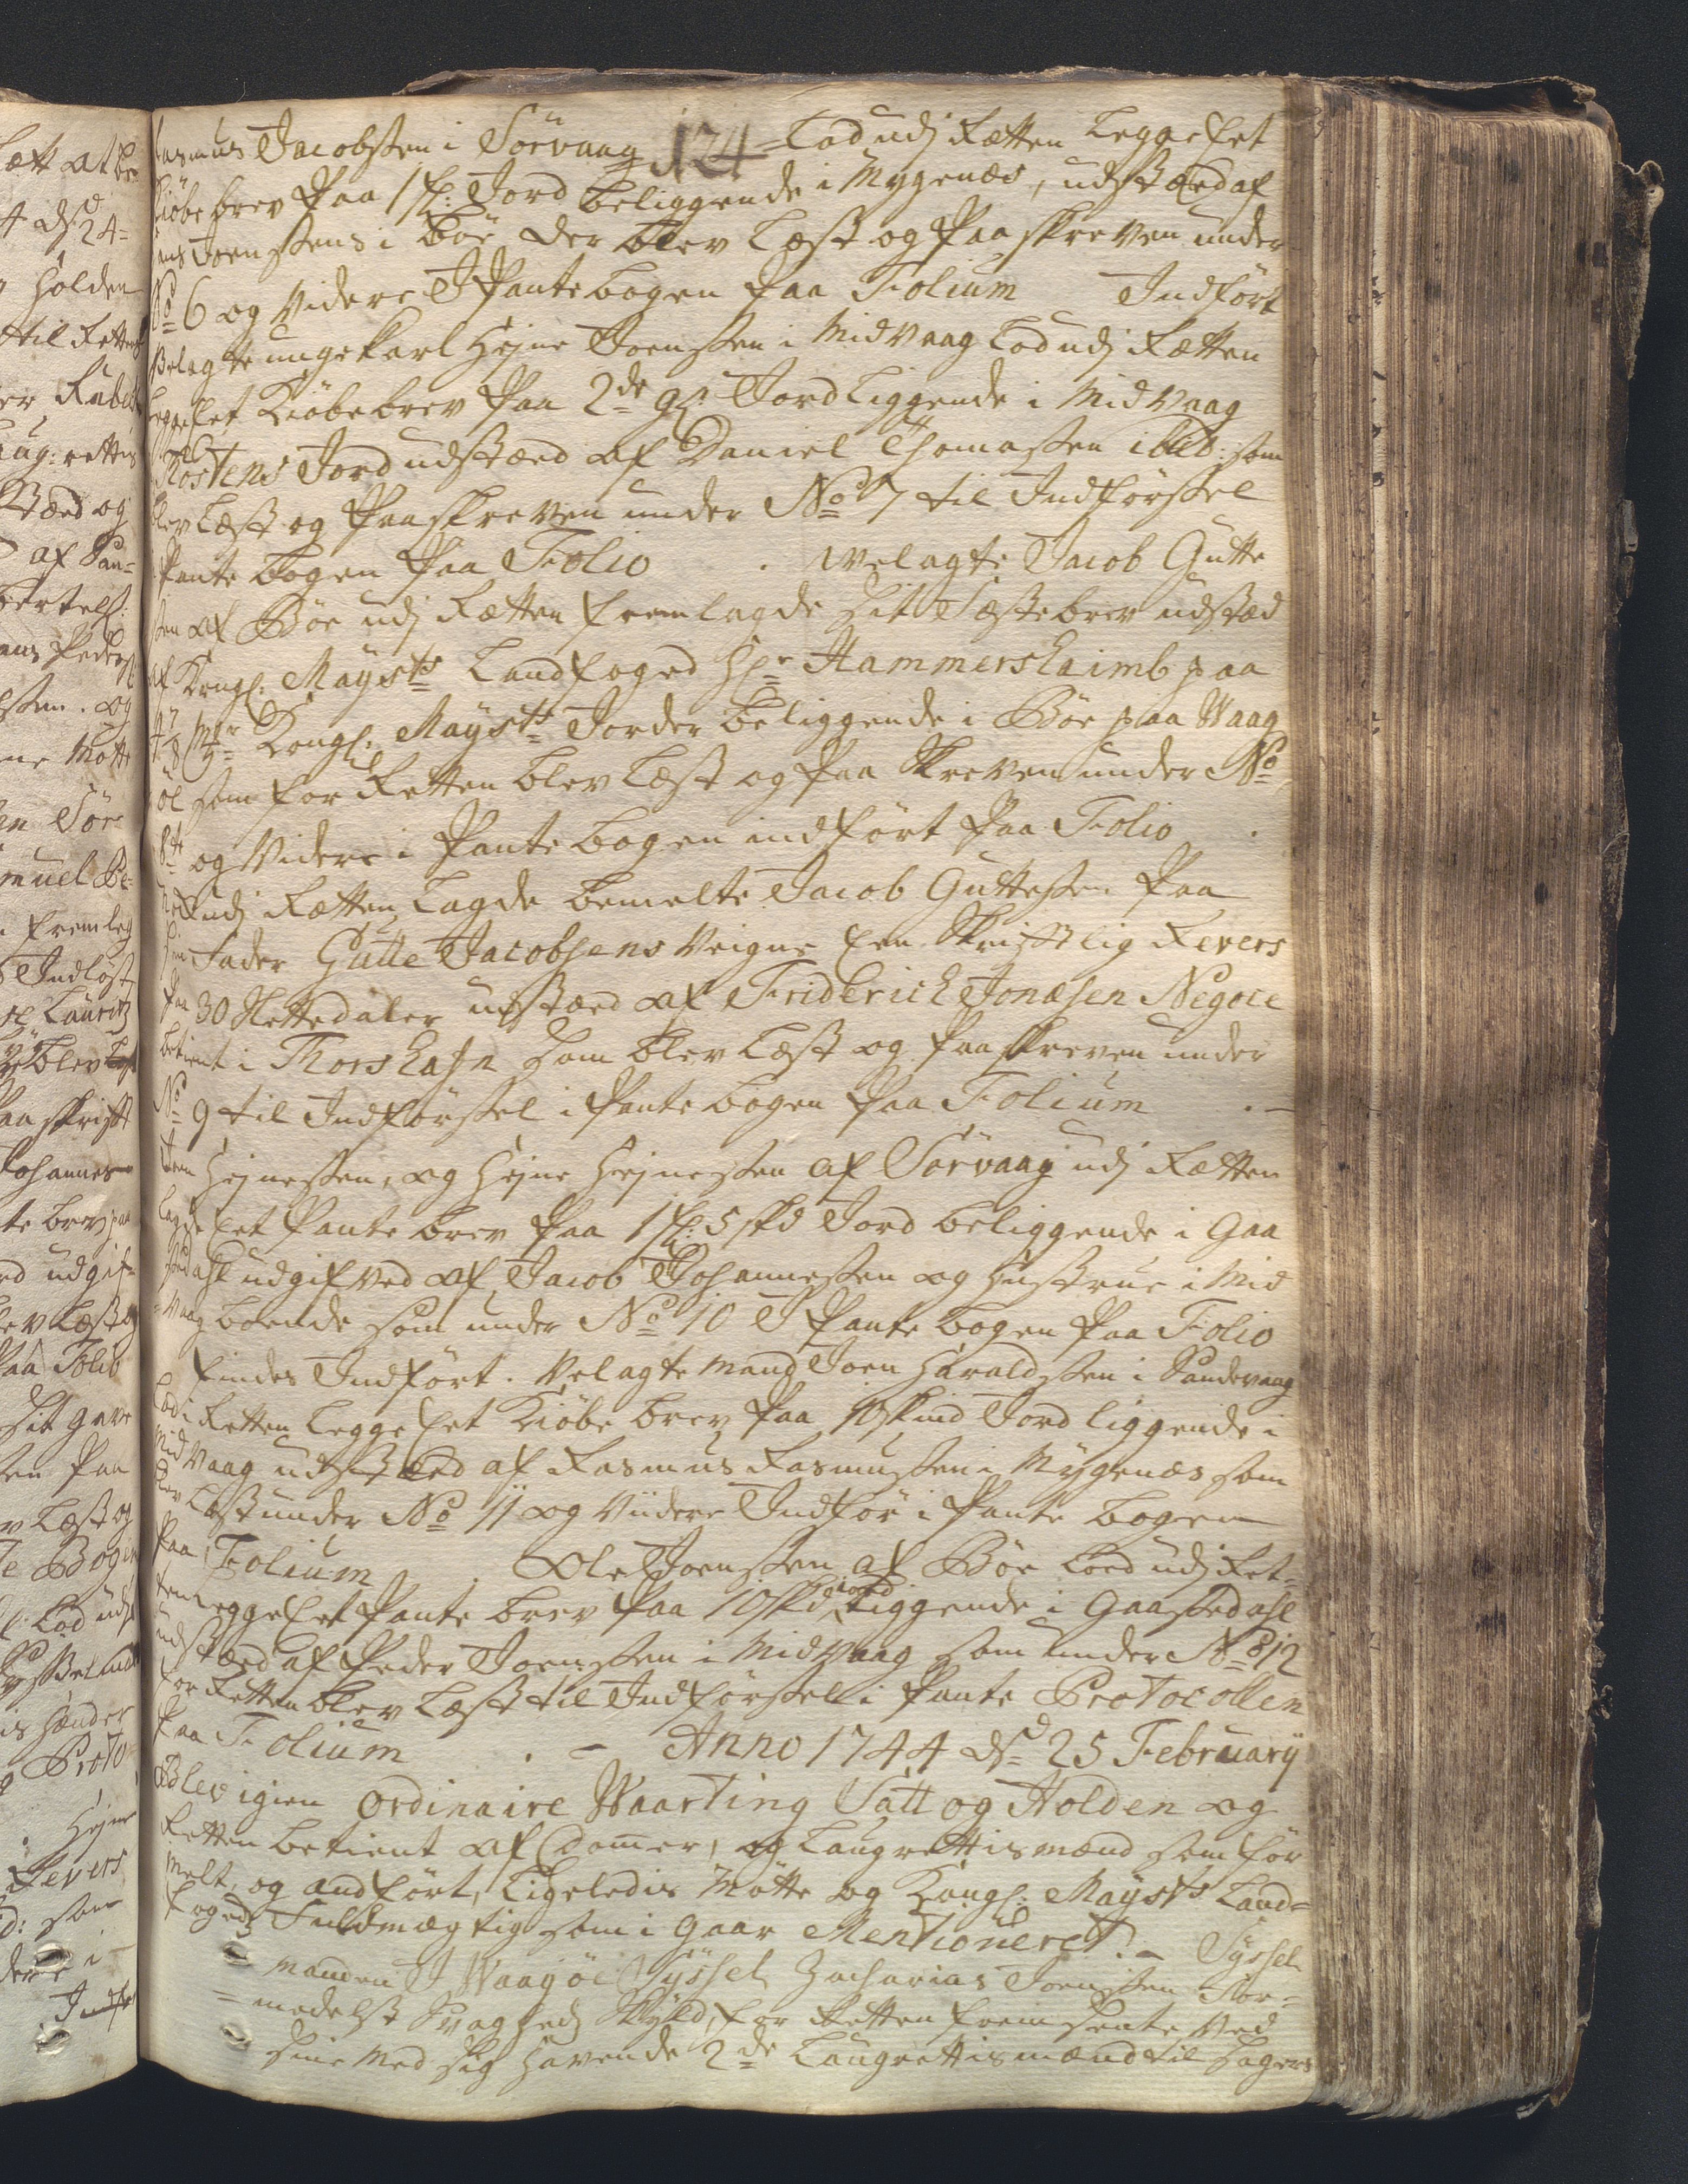 124
Rasmus Jacobssen i Sörvaag Lod udj Retten Legge Eet
Kiöbe brev Paa 1 Jord beliggende i Mygenæs, udstæd af
Joenssens i Böe der blev Læst og Paaskreven under
No 6 og Videre J Pantebogen Paa Folium Indfört
Velagte unge karl Hejne Joenssen i Midvaag Lod udj Retten
Legge Eet Kiöbebrev Paa 2de gl Jord Liggende i Midvaag
Jord udstæd af Daniel Thomassen ibid: som
blev Læst og Paaskreven under No 7 til Indförssel
Pante bogen Paa Folio . Velagte Jacob Gutte
ssen af Böe udj Retten fremlagde Sit Fæstebrev udstæd
af Kongl: Mayts Landfoged Hr Hammershaimb paa
Kongl: Mayts Jorder beliggende i Böe paa Waag
öe som for Retten blev Læst og Paa Skreven under No
8de og Videre i Pante bogen indfört Paa Folio .
udj Retten Lagde bemelte Jacob Guttessen Paa
Sin Fader Gutte Jacobsens Veigne Een Skriftlig Revers
Paa 30 Slettedaler udstæd af Friderich Jonæsen Negoce
betient i Thorshafn Som blev Læst og Paaskreven under
No 9 til Indförssel i Pante bogen Paa Folium . -
Hejnessen, og Hejne Hejnessen af Sörvaag udj Retten
Lagde Eet Pante brev Paa 1 5 skd Jord beliggende i Gaa
ssedahl udgifved af Jacob Johannessen og Hustrue i Mid
vaag boende som under No 10 J Pante bogen Paa Folio
findes Indfört. Velagte Mand Joen Haraldssen i Sandevaag
Lod i Retten Legge Eet Kiöbe brev Paa 10 skind Jord liggende i
Midvaag udstæd af Rasmus Rasmussen i Mygenæs som
blev Læst under No 11 og Viidere Indför i Pante bogen
Paa Folium . Ole Joenssen af Böe Lod udj Ret-
ten Legge Eet Pante brev Paa 10 skd jord Liggende i Gaassedahl
udstæd af Peder Joenssen i Midvaag som under No 12
for Retten blev Læst til Indförssel i Pante Protocollen
Paa Folium . - Anno 1744 dnd 25 February
Blev igien ordinaire Waarting Satt og Holden og
Retten betient af Dommer, og Laugrettismænd som för
melt, og andfört, Ligeledis Mötte og Kongl: Mayts Land=
fogeds Fuldmægtig som i Gaar Mentioneret. - Syssel
manden J Waagöe Syssel Zacharias Joenssen For-
=medelst Svaghed Skyld, for Retten fremsente Ved
Sine Med sig havende 2de Laugrettismænd til Sagers